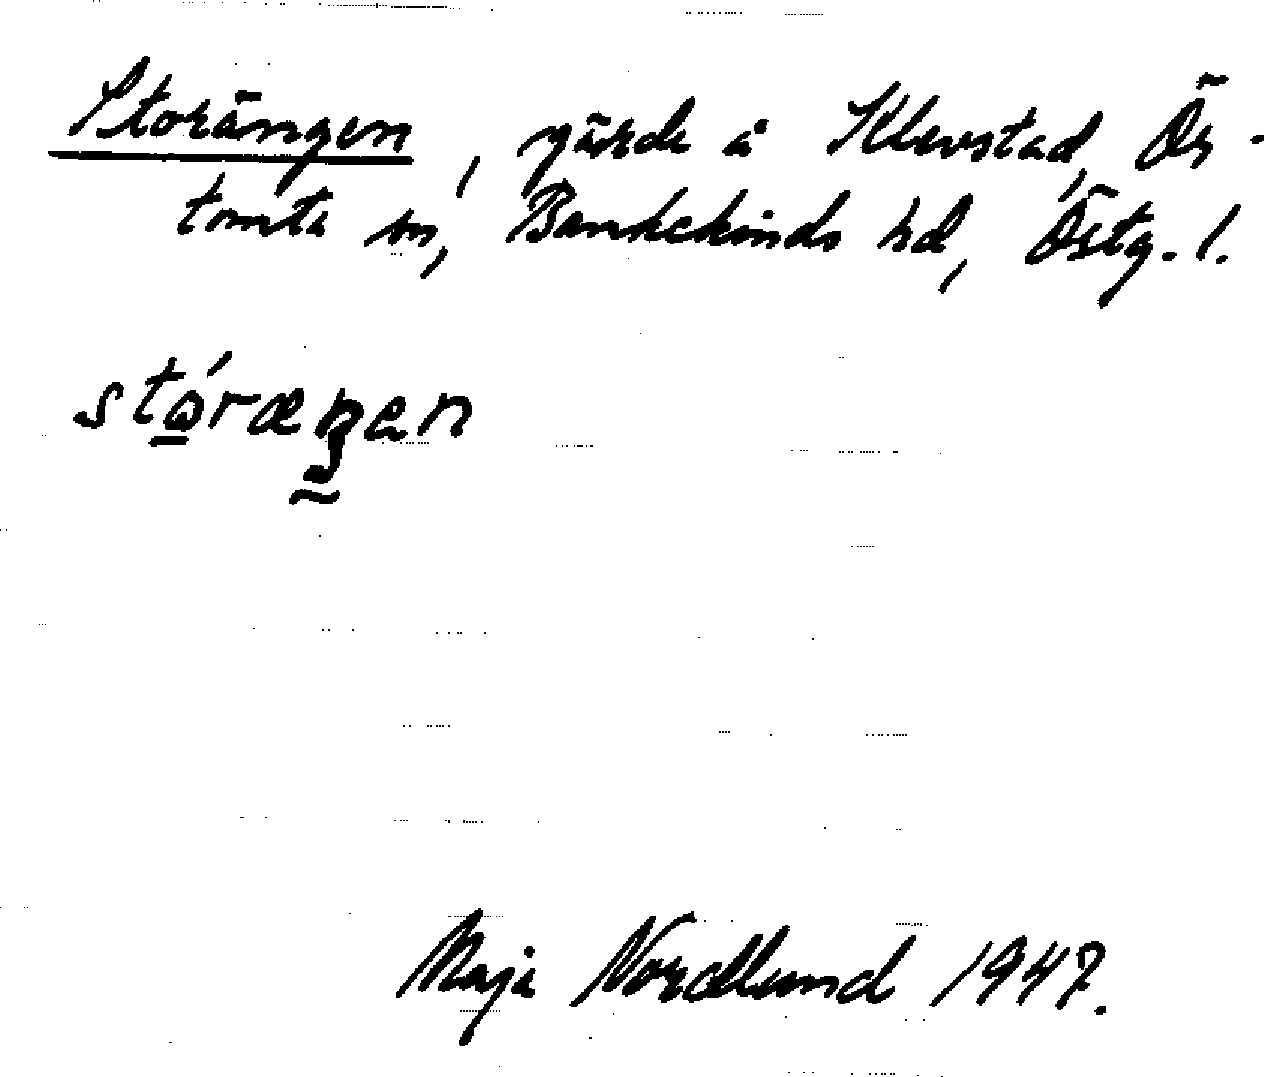 Storängen, gärde å Klevstad, Ör-
tomta sn, Bankekinds hd, Östg. l.
stó̱ræŋen
Maja Nordlund 1947.